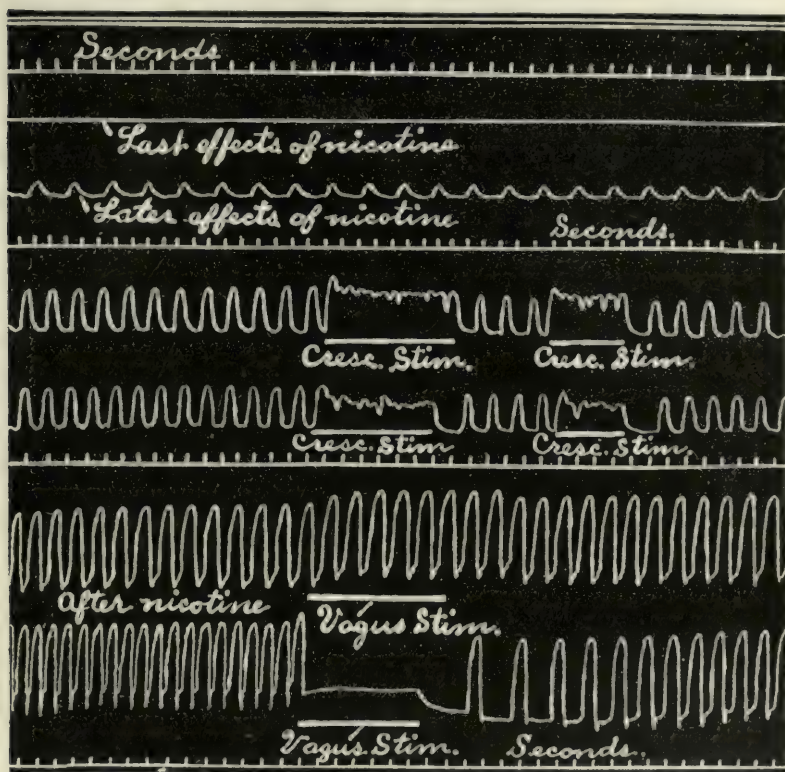 Seconds
Last effects of nicotine
Later effects of nicotine
Seconds.
Cresc. Stim. Cresc. Stim.
Cresc. Stim Cresc. Stim.
After nicotine
Vagus Stim.
Vagus. Stim. Seconds.